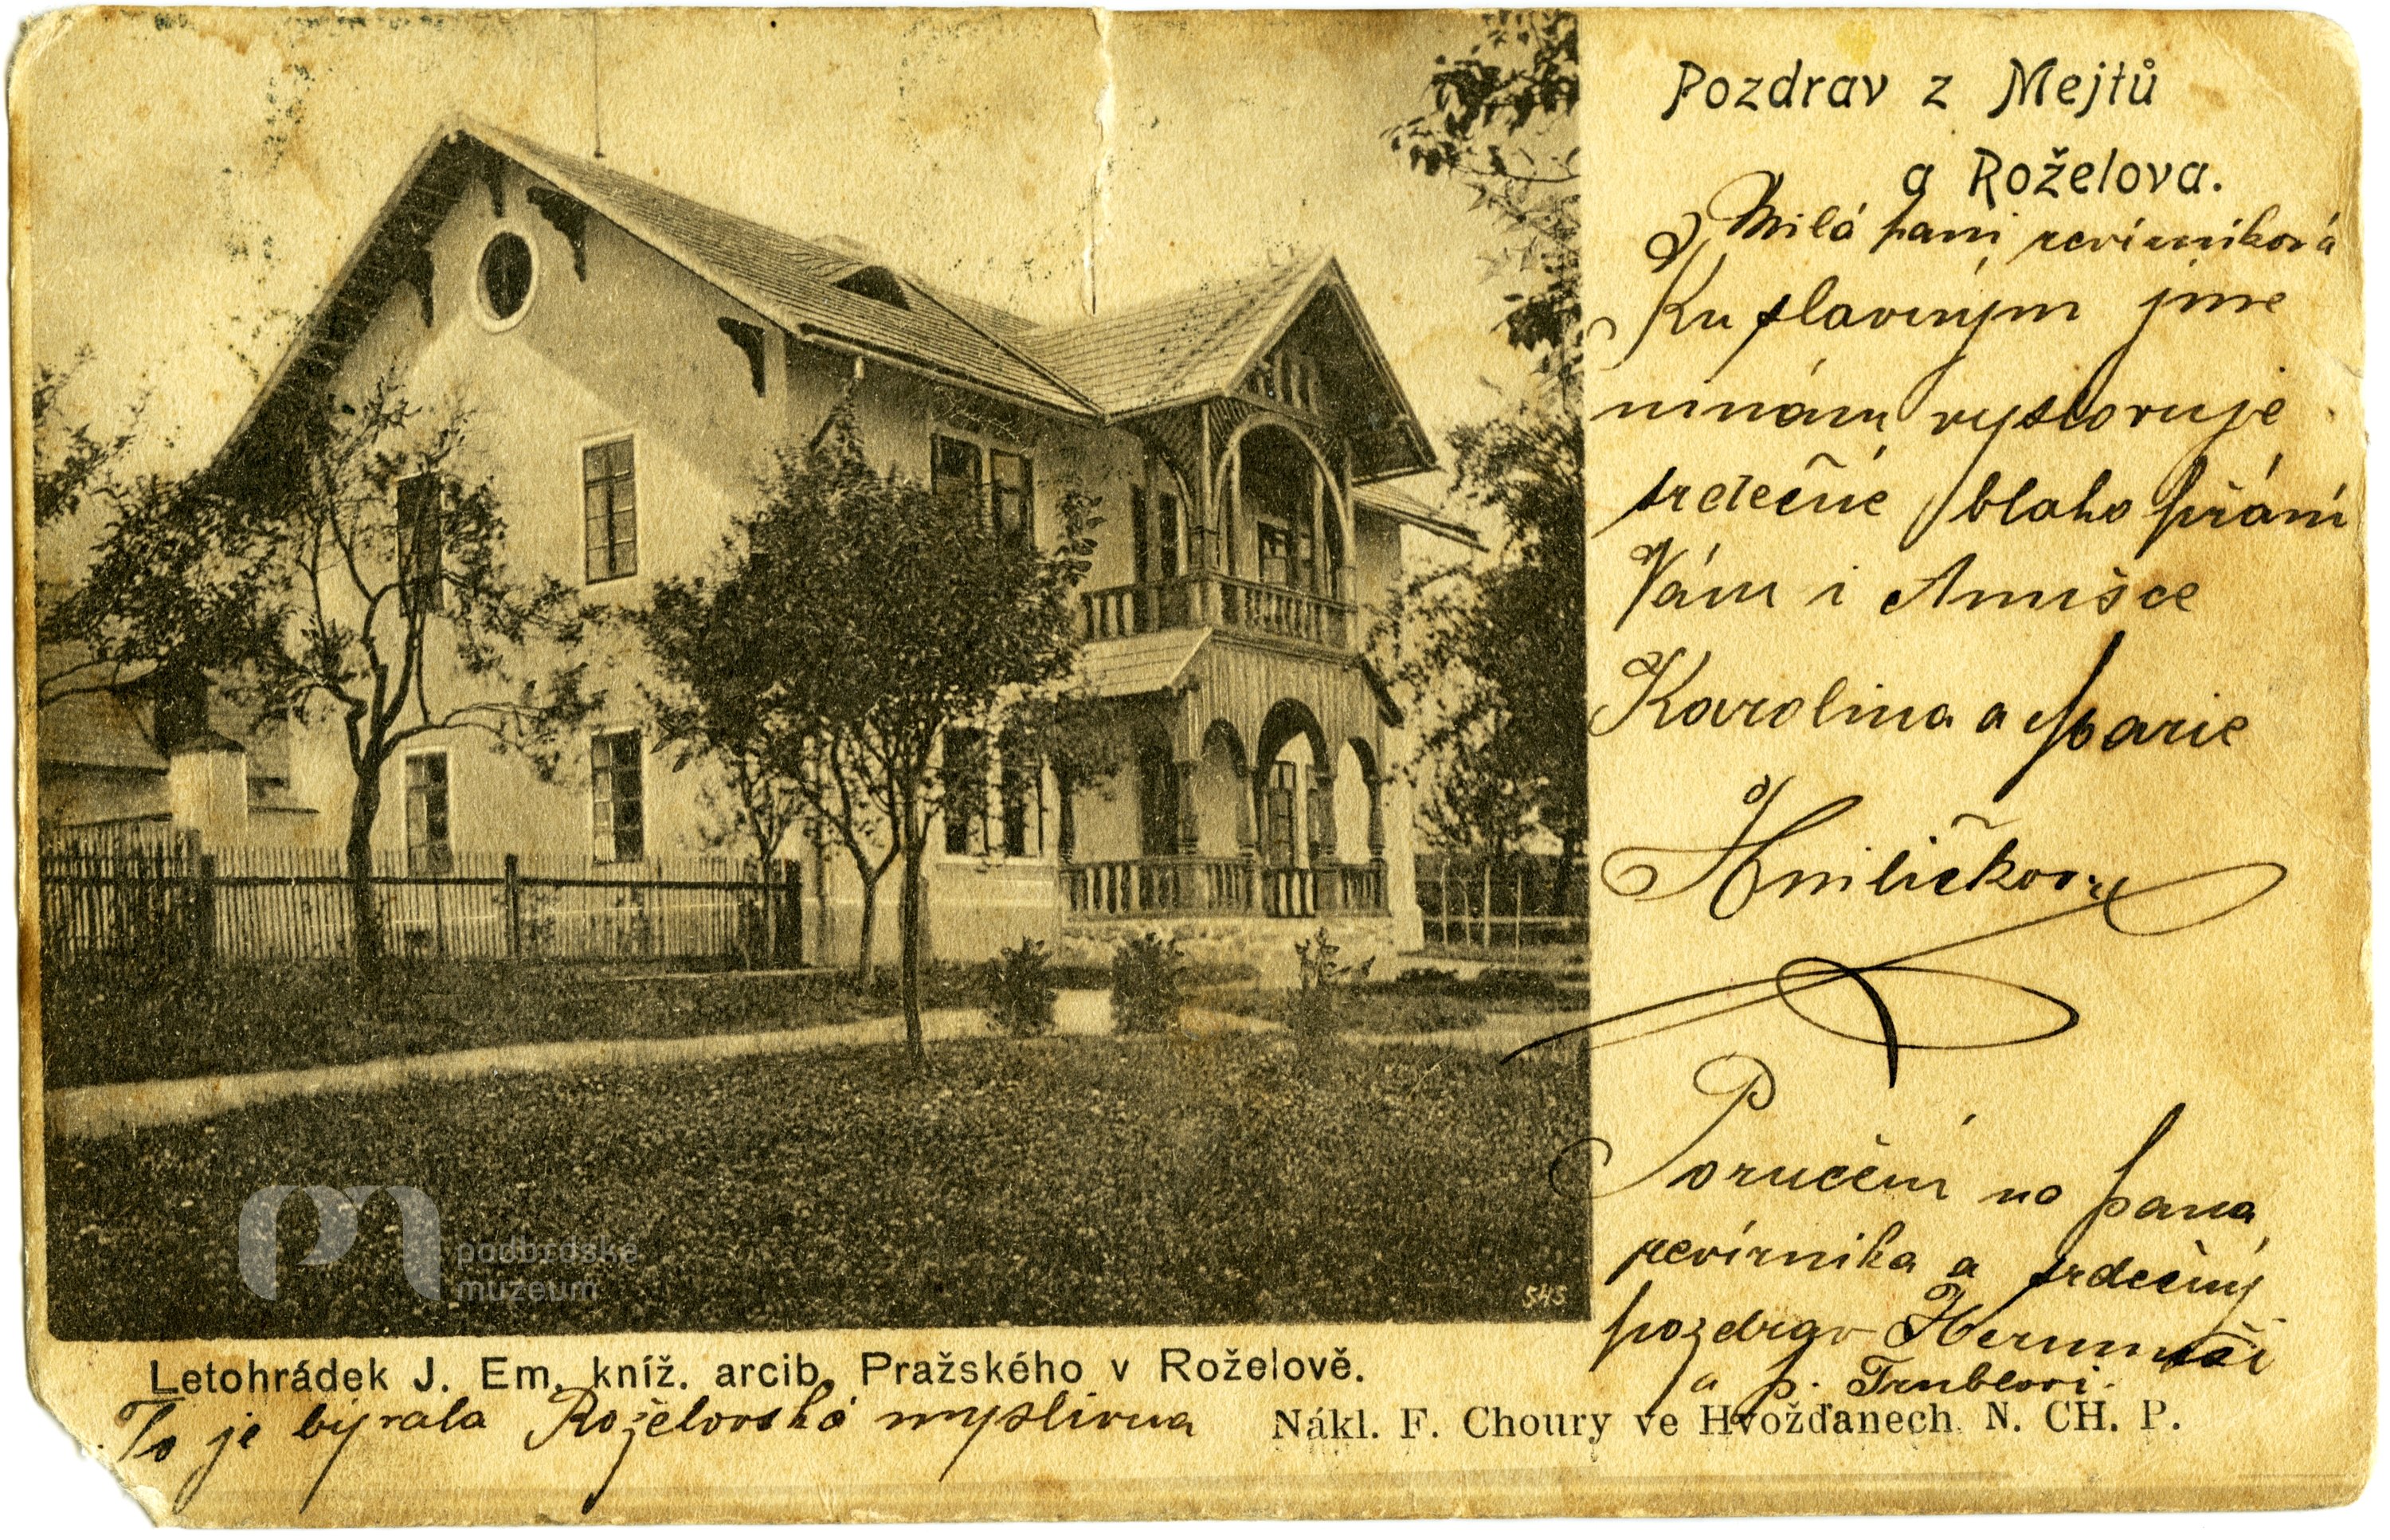 Pozdrav z Mejtů
a Roželova.
Milá paní revírníková
Ku slavným jme
ninám vyslovuje
srdečné blaho přání
Vám i Amišce
Karolina a Marie
Hniličkova
Poručění na pana
revírnika a srdečný
pozdrav
a p.
podbrdské
muzeum
SHS
Letohrádek J. Em. kníž. arcib. Pražského v Roželově.
To je bývala Roželovská myslivna
Nákl. F. Choury ve Hvožďanech N. CH. P.